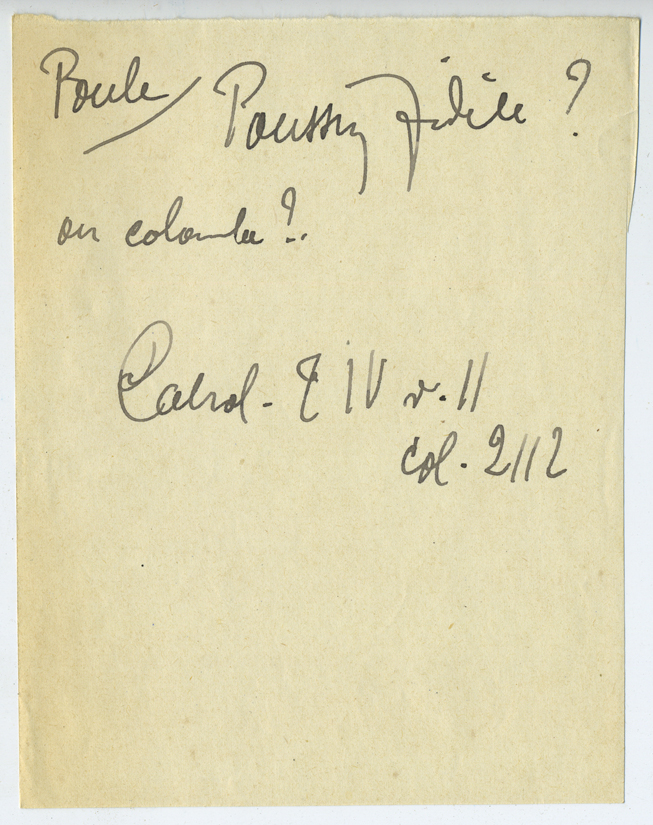 Poule / Poussin fidèle ?
ou colombe ?.
Cabrol - T IV v. II
col. 2112